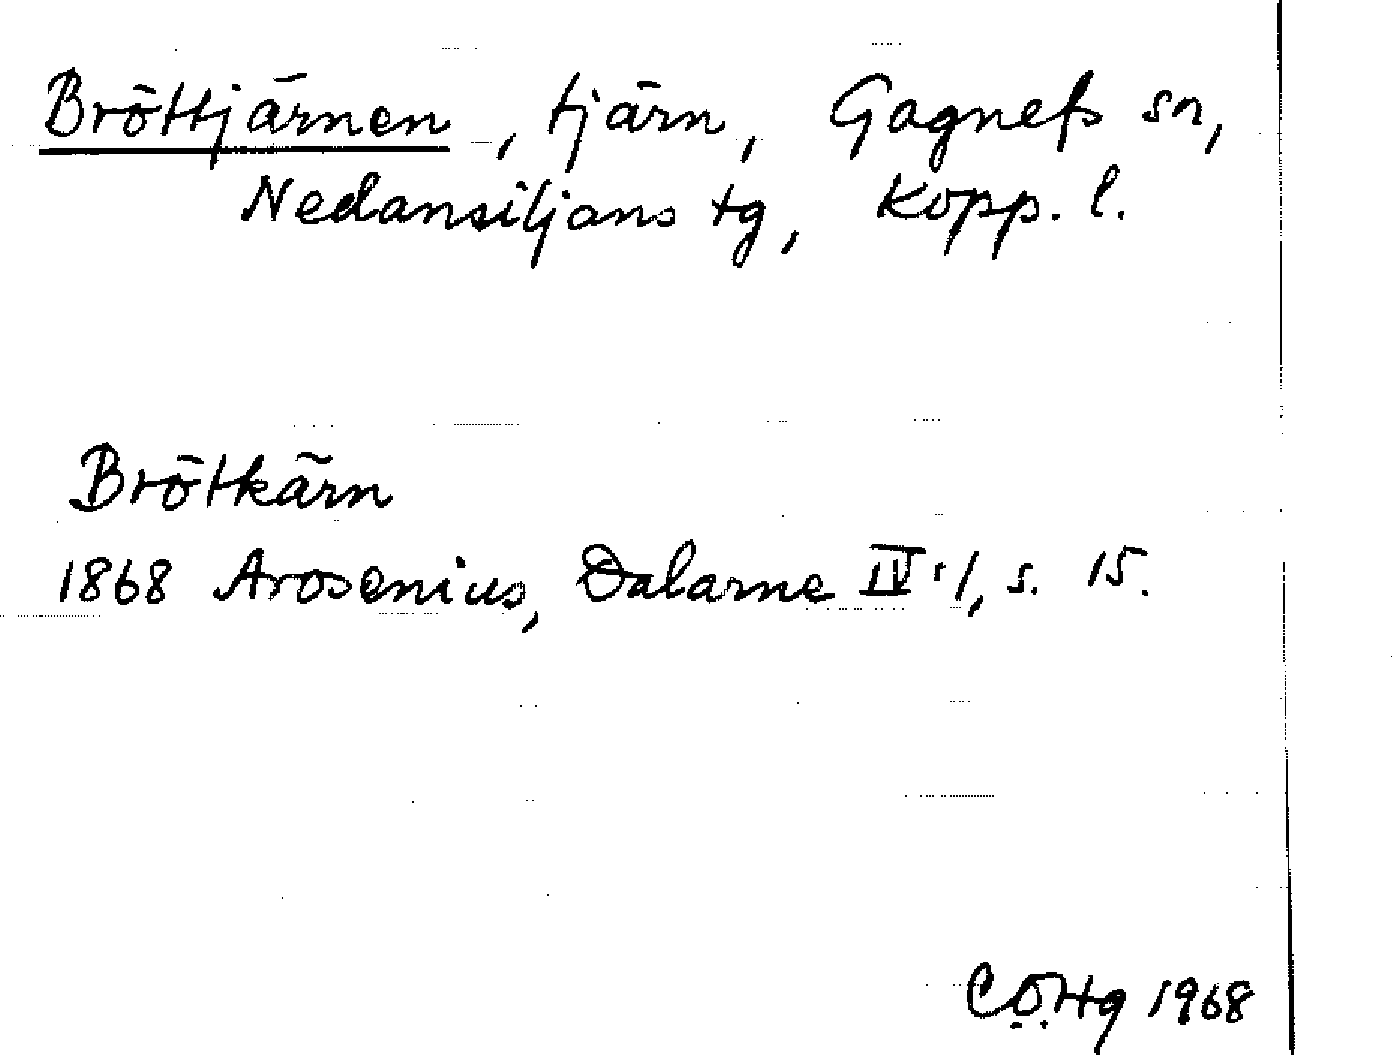 Bröttjärnen, tjärn, Gagnefs sn,
Nedansiljans tg, Kopp. l.
Brötkärn
1868 Arosenius, Dalarne IV:1, s. 15.
C.O.Hg 1968